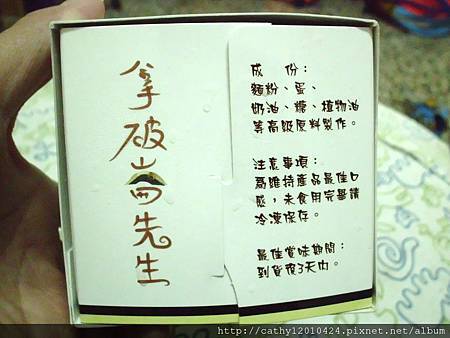 拿破崙先生
成 份：
麵粉、蛋、
奶油、糖、植物油
等高級原料製作。
注意事項：
為維持產品最佳口
感，未食用完畢請
冷凍保存。
最佳賞味期間：
到貨後3天內。
http://cathy12010424.pixnet.net/album